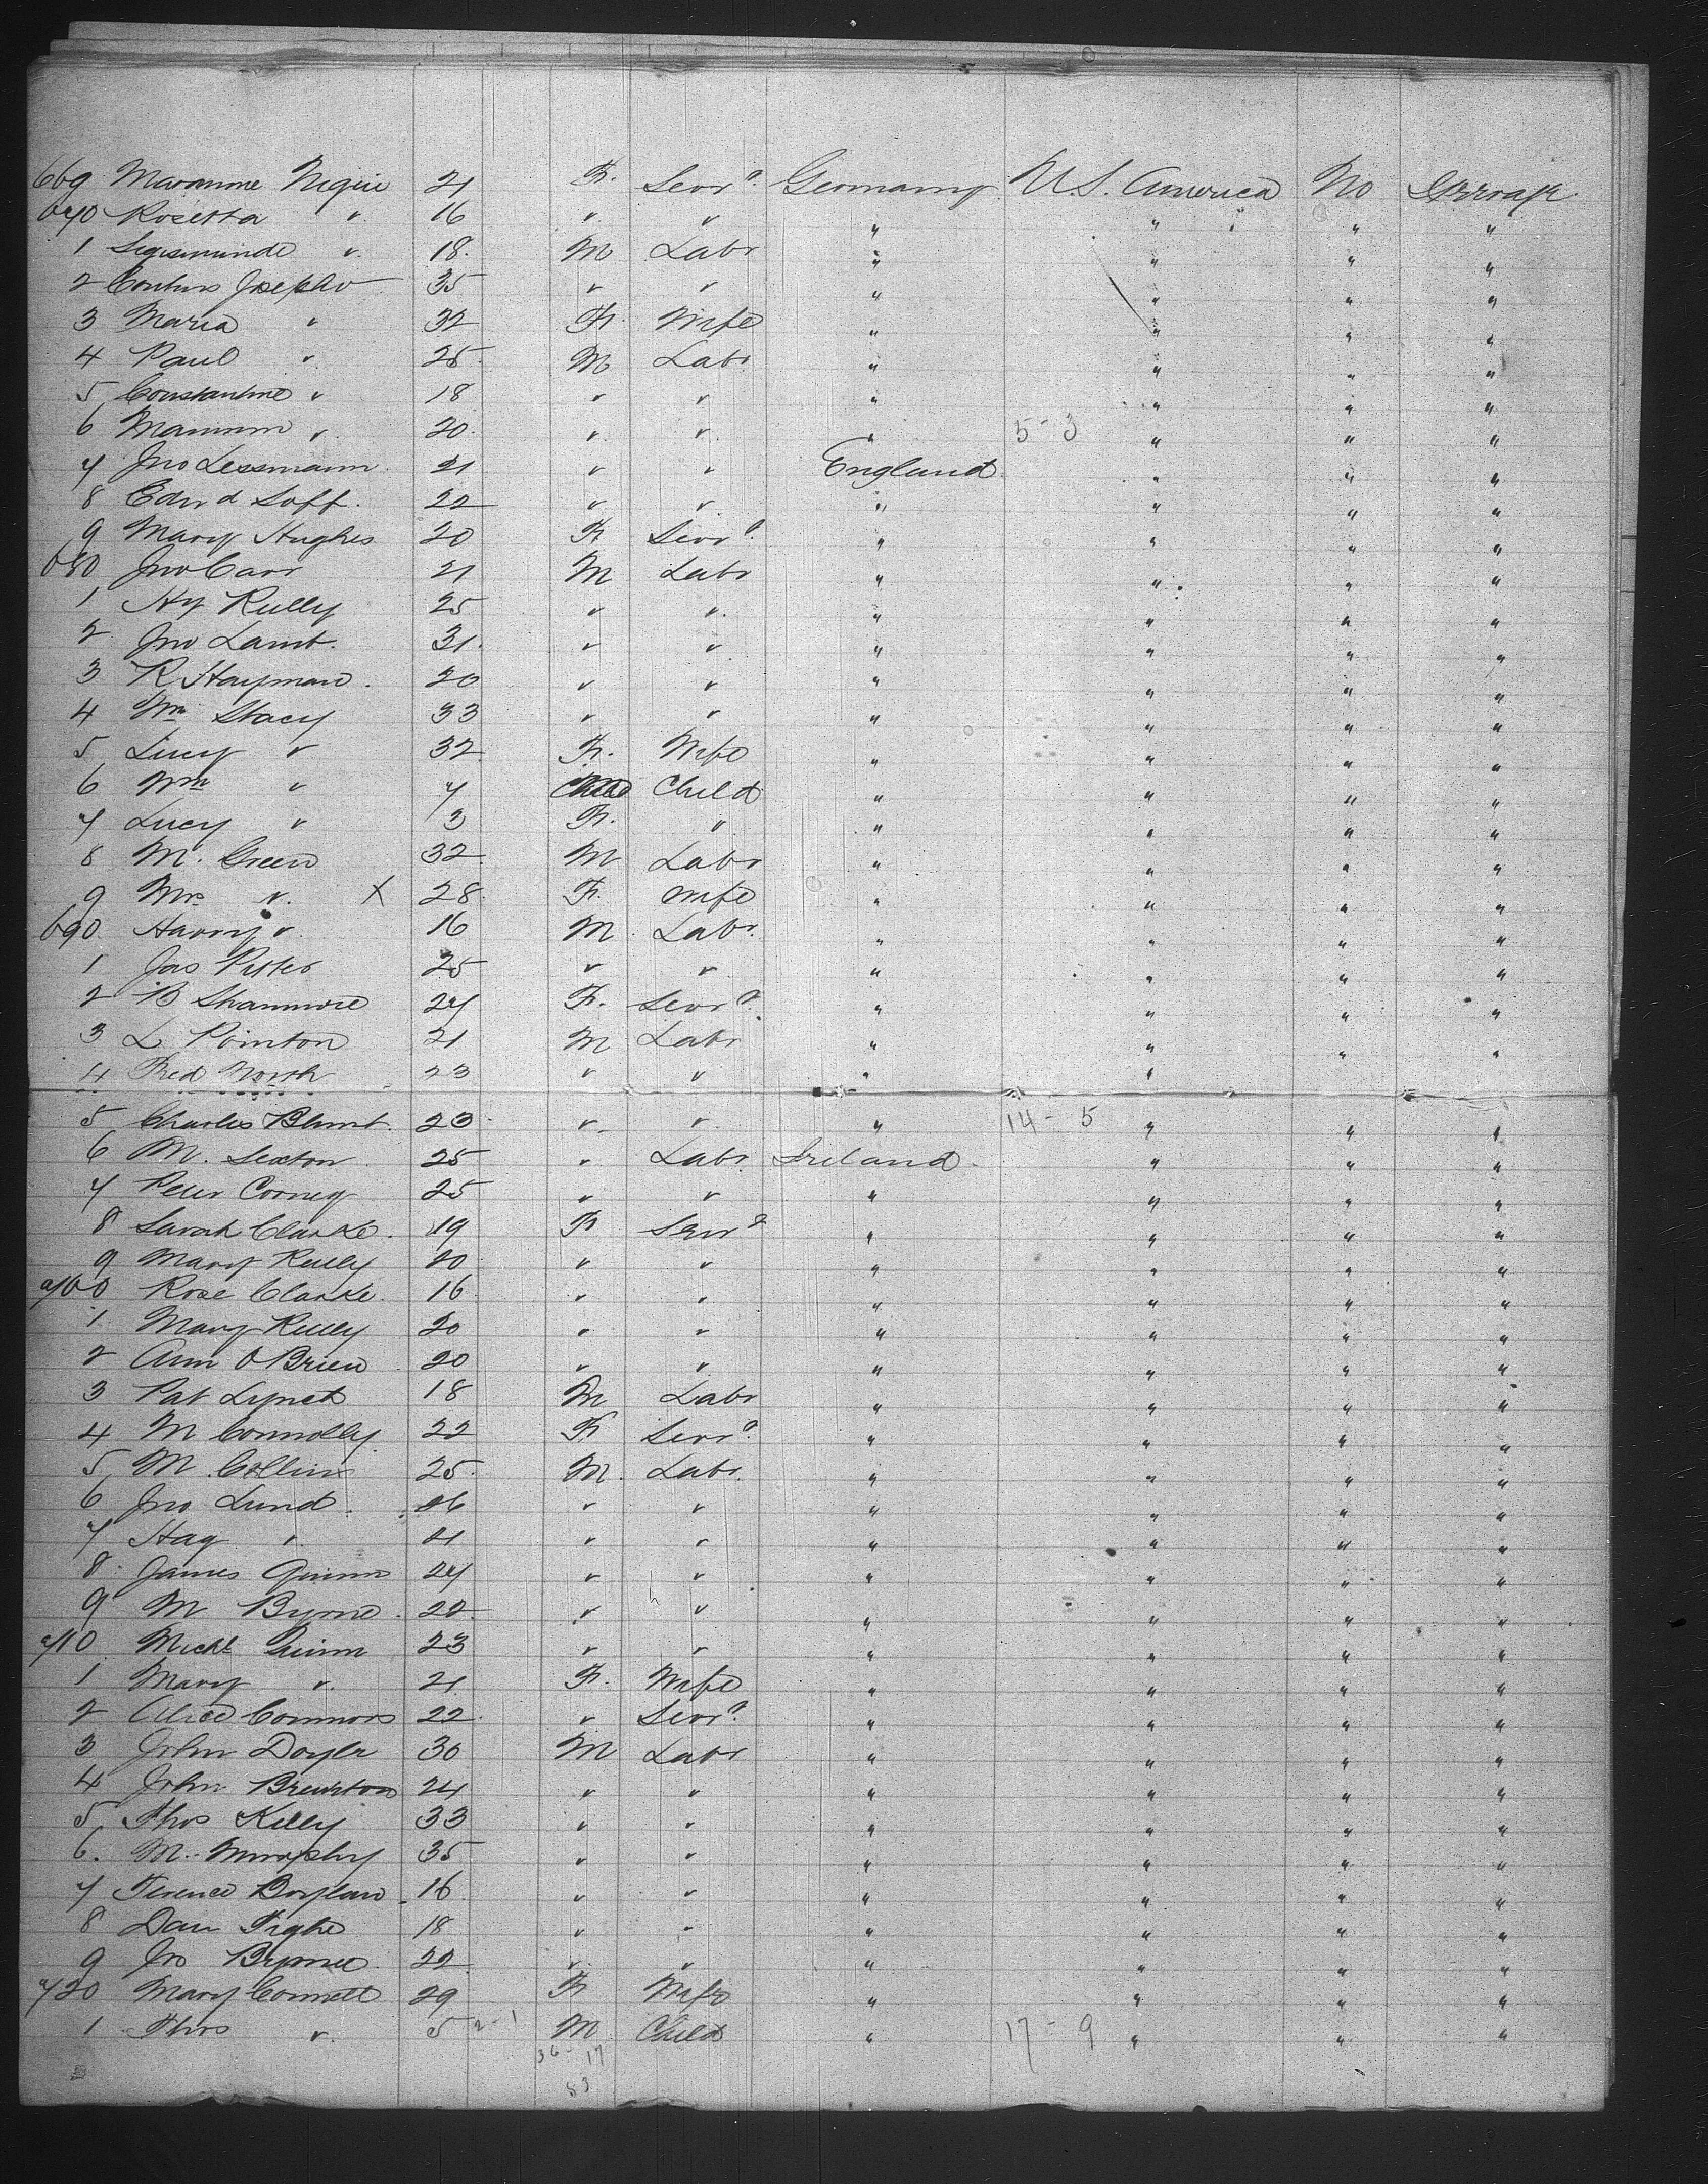 669 Marianne 21 F. Serv? Germany U.S. America No
670 Rosetta " 16 " " " " " "
1 Sigismunde " 18. M Labr " " " "
2 35 " " " " " "
3 Maria " 32 F. Wife " " " "
4 Paul " 25. M Labr " " " "
5 Constantine " 18 " " " " " "
6 " 20. " " " 5-3 " " "
7 Jno Lessmann. 21 " " England " " "
8 Edwd 22 " " " " " "
9 Mary Hughes 20 F Serv? " " " "
680 Jno Carr 21 M Labr " " " "
1 Hy Reilly 25 " " " " " "
2 Jno Lamb. 31. " " " " " "
3 R Hayman. 20 " " " " " "
4 Wm Stacy 33 " " " " " "
5 Lucy " 32 F. Wife " " " "
6 Wm " 7 Child " " " "
7 Lucy " 3 F. " " " " "
8 M. Green 32 M Labr " " " "
9 Mrs " X 28. F. Wife " " " "
690 Harry " 16 M Labr. " " " "
1 Jas 25 " " " " " "
2 B 27 F. Serv? " " " "
3 L Pointon 21 M Labr " " " "
4 Fred North 23 " " " " " "
5 Charles Blunt. 23 " " " 14-5 " " "
6 M. Sexton 25 " Labr. Ireland " " "
7 Peter 25 " " " " " "
8 Sarah Clarke. 19 F Serv? " " " "
9 Mary Reilly 20 " " " " " "
700 Rose Clarke. 16 " " " " " "
1 Mary Reilly 20 " " " " " "
2 Ann O'Brien 20 " " " " " "
3 Pat Lynch 18 M Labr " " " "
4 M Connolly 22 F Serv? " " " "
5 M. Collins 25. M. Labr. " " " "
6 Jno Lund. " " " " " "
7 " 21 " " " " " "
8. James Quinn 27 " " " " " "
9 M Byrne. 22 " " " " " "
710 Michl Quinn 23 " " " " " "
1 Mary " 21 F. Wife " " " "
2 Alice Connors 22 " Serv? " " " "
3 John Doyle 30 M Labr " " " "
4 John 24 " " " " " "
5 Thos Kelly 33 " " " " " "
6. M. Murphy 35 " " " " " "
7 Terence Boylan 16 " " " " " "
8 Dan Tighe 18 " " " " " "
9 Jno Byrne 22 " " " " " "
720 Mary 29 F Wife " " " "
1 Thos " 5 2-1 M Child " 17-9 " " "
36-17
53